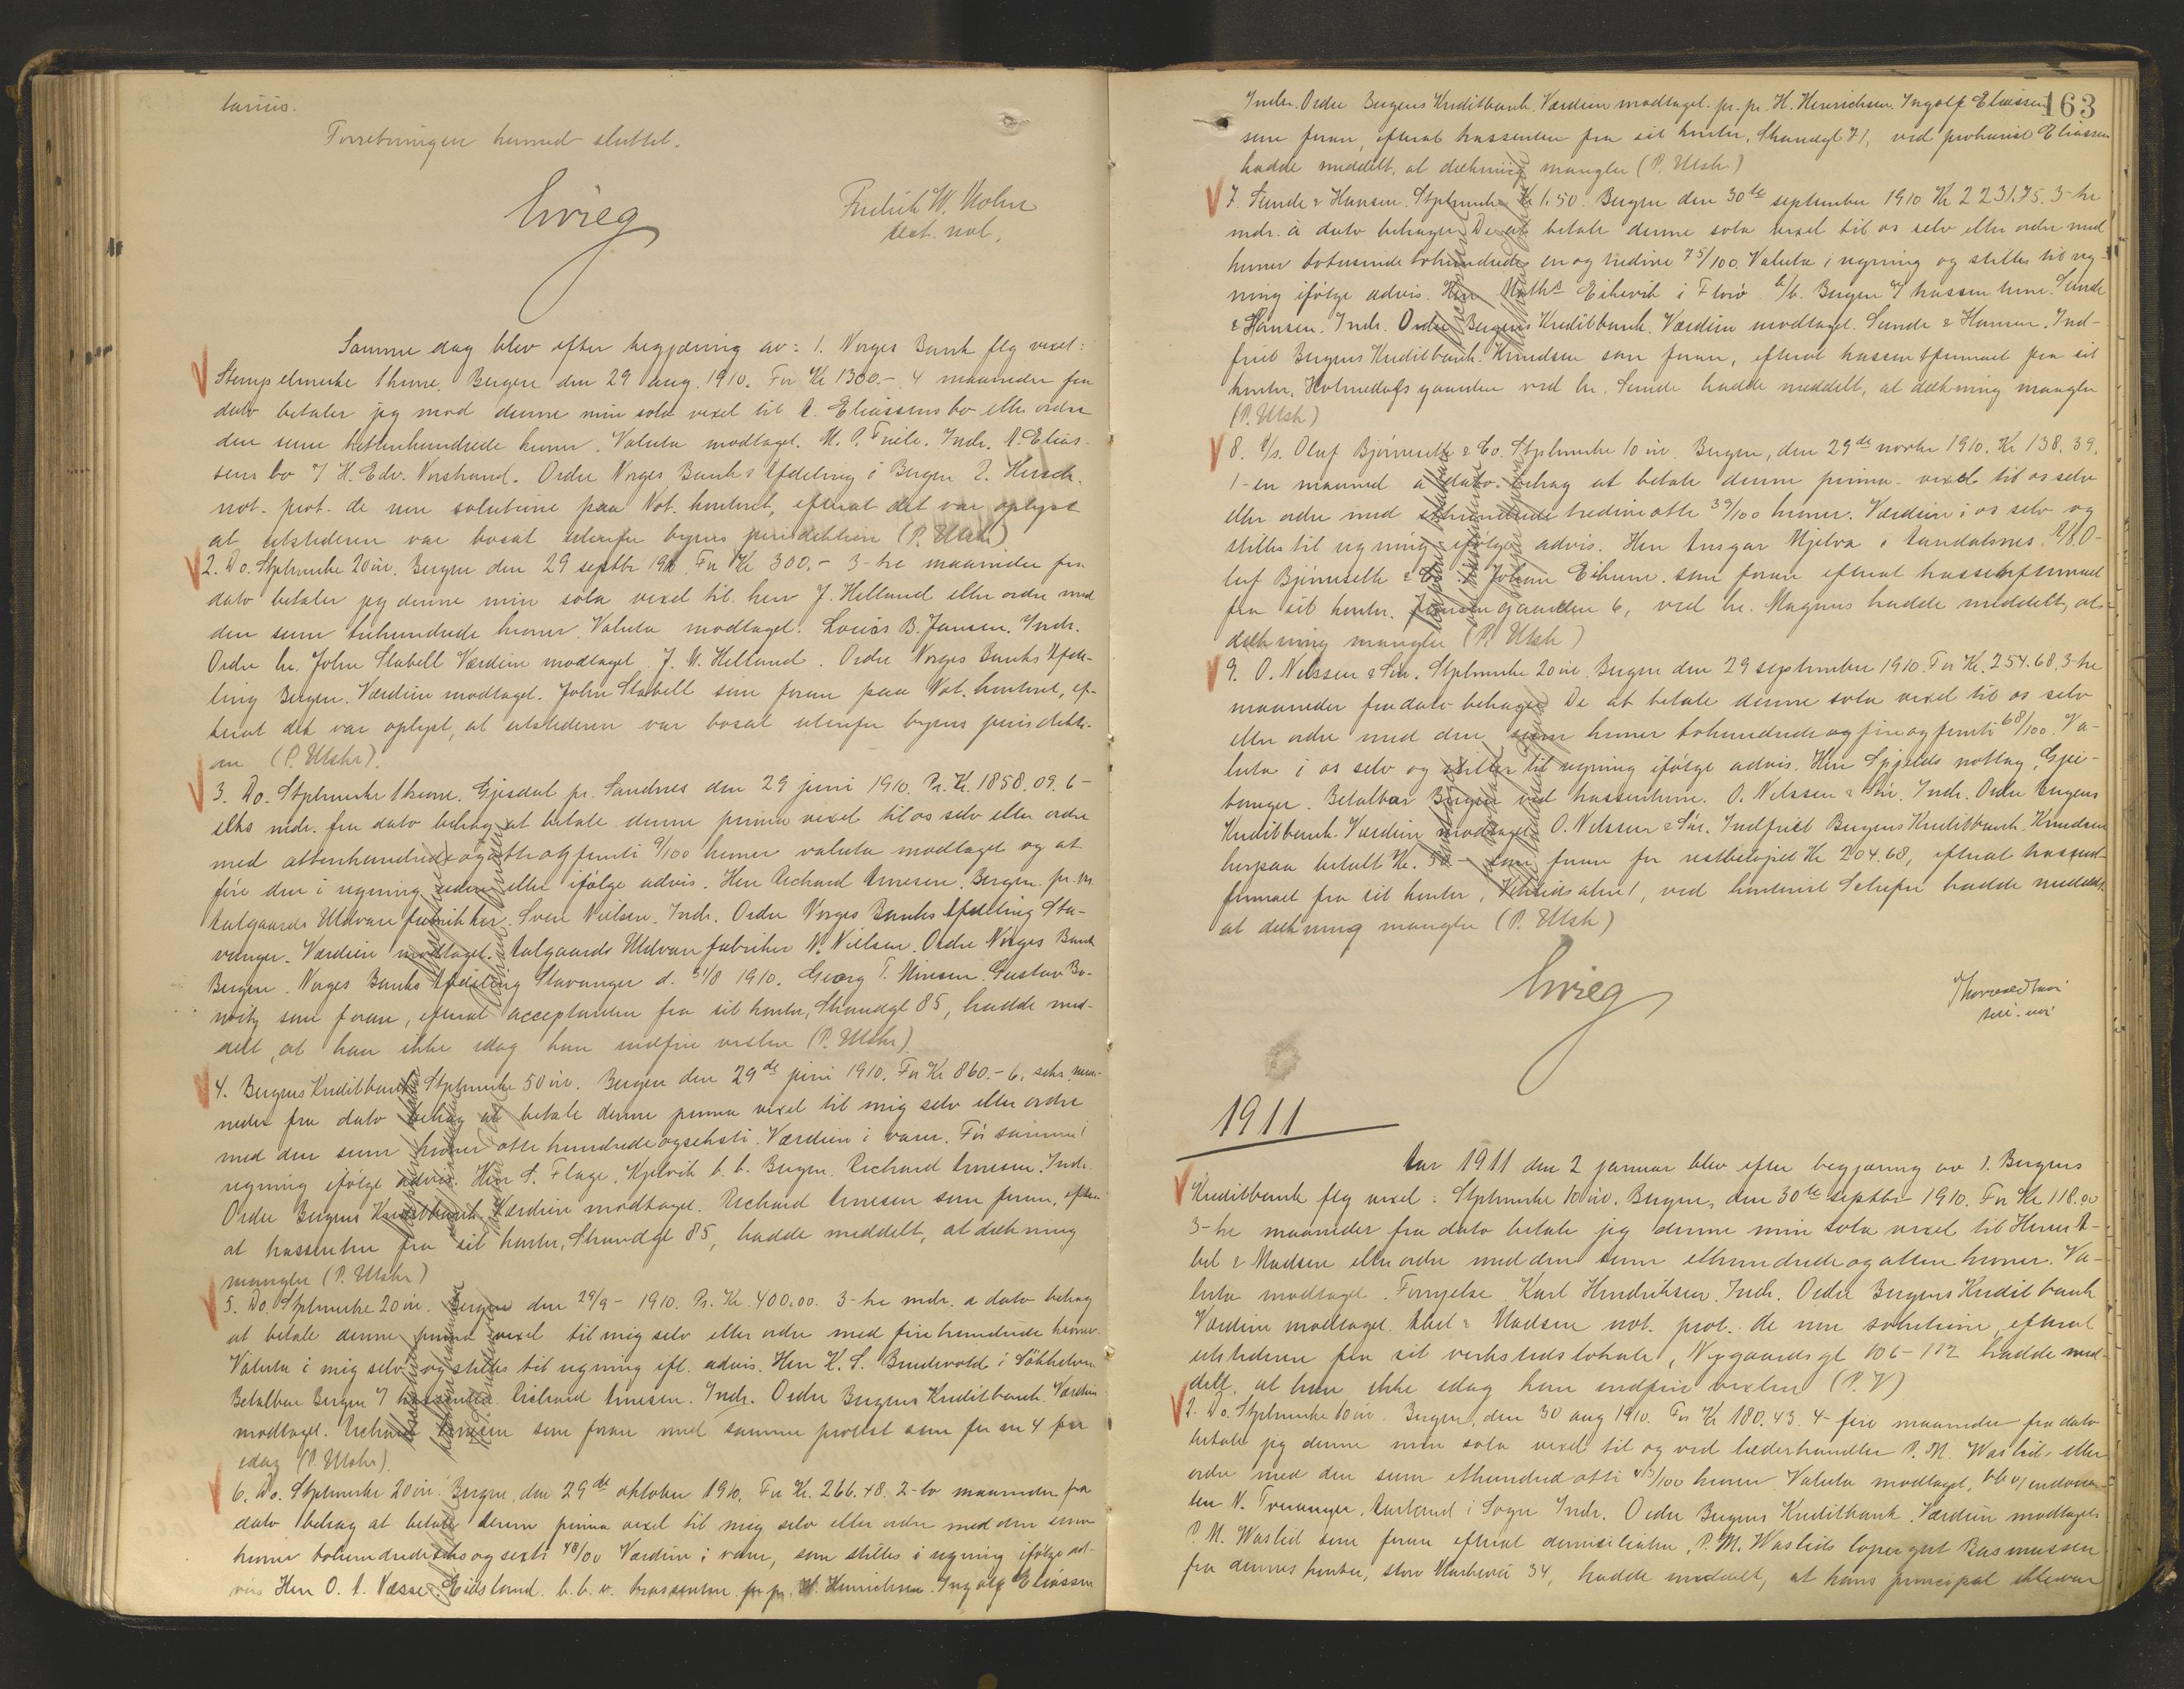 tarius.
Forretningen hermed sluttet.
Grieg
Fredrik W. Holm
test. not.
Samme dag blev efter begjæring av: 1. Norges Bank flg vexel:
Stempelmerke 1 krone. Bergen den 29 aug. 1910. For Kr 1300.- 4 maaneder fra
dato betaler jeg mod denne min sola vexel til A. Eliassens bo eller ordre
den sum trettenhundrede kroner. Valuta modtaget. M. P. Indr. A. Elias-
sens bo H. Edv. Ordre Norges Banks Afdeling i Bergen
not. prot. de non solutione paa Not. kontoret, efterat det var oplyst
at utstederen var bosat utenfor byens jurisdiktion (P. Utstr)
2. Do. Stplmerke 20 øre. Bergen den 29 septbr 1910. For Kr 300.- 3-tre maaneder fra
dato betaler jeg denne min sola vexel til herr J. Helland eller ordre med
den sum trehundrede kroner. Valuta modtaget. Louis B. Jansen. Indr.
Ordre hr. John Stabell Værdien modtaget. J. M. Helland. Ordre Norges Banks Afde-
ling Bergen. Værdien modtaget. John Stabell som foran paa Not. kontoret, ef-
terat det var oplyst, at utstederen var bosat utenfor byens jurisdikti-
on (P. Utstr).
3. Do. Stplmerke 1 krone. Gjesdal pr. Sandnes den 29 juni 1910. Pr. Kr. 1858.09. 6-
seks mdr. fra dato behag at betale denne prima vexel til os selv eller ordre
med attenhundrede og otte og femti 9/100 kroner valuta modtaget og at
føre den i regning uden eller ifølge advis. Herr Richard Arnesen. Bergen. pr. pr.
Aalgaards Uldvarefabrikker. Sven Nielsen. Indr. Ordre Norges Banks Afdeling Sta-
vanger. Værdien modtaget. Aalgaards Uldvarefabriker N. Nielsen. Ordre Norges Bank
Bergen. Norges Banks Afdeling Stavanger d. 31/8 1910. Georg T. Gustav
som foran, efterat acceptanten fra sit kontor, Strandgt 85, hadde med-
delt, at han ikke idag kan indfrie vexlen (P. Utstr).
4. Bergens Kreditbank Stplmerke 50 øre. Bergen den 29de juni 1910. For Kr 860.- 6, seks maa-
neder fra dato behag at betale denne prima vexel til mig selv eller ordre
med den sum kroner otte hundrede og seksti. Værdien i varer. Før samme i
regning ifølge advis. Herr S. Flage, b. b. Bergen. Richard Arnesen. Indr.
Ordre Bergens Kreditbank. Værdien modtaget. Richard Arnesen som foran, efter-
at trassenten fra sit kontor, Strandgt 85, hadde meddelt, at dækning
mangler (P. Utstr)
5. Do. Stplmerke 20 øre. Bergen den 29/9 - 1910. Pr. Kr. 400.00. 3-tre mdr. a dato behag
at betale denne prima vexel til mig selv eller ordre med fire hundrede kroner.
Valuta i mig selv og stilles til regning ifl. advis. Herr K. S.
Betalbar Bergen Richard Arnesen. Indr. Ordre Bergens Kreditbank. Værdien
modtaget. Richard Arnesen som foran med samme protest som for no 4 for
idag (P. Utstr).
6. Do. Stplmerke 20 øre. Bergen, den 29de oktober 1910. For Kr. 266.48. 2-to maaneder fra
dato behag at betale denne prima vexel til mig selv eller ordre med den sum
kroner tohundrede seks og seksti 48/00 Værdien i varer, som stilles i regning ifølge ad-
vis Herr O. A. Næsse. Eidsland. b. b. v. trassenten. pr. pr. H. Henrichsen. Ingolf Eliassen
163
Indr. Ordre Bergens Kreditbank. Værdien modtaget. pr. pr. H. Henrichsen. Ingolf Eliassen
som foran, efterat trassenten fra sit kontor, Strandgt 71, ved prokurist Eliassen
hadde meddelt, at dækning mangler (P. Utstr)
7. Sunde & Hansen. Stplmerke Kr 1.50. Bergen den 30te september 1910 Kr 2231.75. 3-tre
mdr. à dato behager De at betale denne sola vexel til os selv eller ordre med
kroner totusinde tohundrede en og tredive 75/100. Valuta i regning og stilles til reg-
ning ifølge advis. Herr Eikevik i Florø. b/b. Bergen trassenterne. Sunde
& Hansen. Indr. Ordre Bergens Kreditbank. Værdien modtaget. Sunde & Hansen. Ind-
friet Bergens Kreditbank. Knudsen som foran, efterat trassentfirmaet fra sit
kontor, Holmedalsgaarden ved hr. Sunde hadde meddelt, at dækning mangler
(P. Utstr)
8. A/s. Oluf Bjørneseth & Co. Stplmerke 10 øre. Bergen, den 29de novbr 1910. Kr 138.39.
1-en maaned a dato behag at betale denne prima-vexel til os selv
eller ordre med etthundrede tredive otte 39/100 kroner. Værdien i os selv og
stilles til regning ifølge advis. Herr Ansgar Mjelva. Aandalsnes. A/S. O-
luf Bjørneseth & Co. Johan som foran efterat trassentfirmaet
fra sit kontor, Jansengaarden 6, ved hr. Magnus hadde meddelt, at
dækning mangler (P. Utstr)
9. O. Nilssen & Søn. Stplmerke 20 øre. Bergen den 29 september 1910. For Kr. 254.68. 3-tre
maaneder fra dato behager De at betale denne sola vexel til os selv
eller ordre med den sum kroner tohundrede og fire og femti 68/100. Va-
luta i os selv og stilles til regning ifølge advis. Herr
Betalbar Bergen ved trassenterne. O. Nilssen & Søn. Indr. Ordre Bergens
Kreditbank. Værdien modtaget. O. Nilssen & Søn. Indfriet Bergens Kreditbank. Knudsen
herpaa betalt Kr. 50 - som foran for restbeløpet Kr 204.68, efterat trassent-
firmaet fra sit kontor, 1, ved kontorist hadde meddelt
at dækning mangler (P. Utstr)
Grieg
1911
Aar 1911 den 2 januar blev efter begjæring av 1. Bergens
Kreditbank flg vexel: Stplmerke 10 øre. Bergen, den 30te septbr 1910. For Kr 118.00
3-tre maaneder fra dato betale jeg denne min sola vexel til Herrer A-
bel & Madsen eller ordre med den sum etthundrede og atten kroner. Va-
luta modtaget. Fornyelse. Karl Hendriksen. Indr. Ordre Bergens Kreditbank
Værdien modtaget. Abel & Madsen not. prot. de non solutione, efterat
utstederen fra sit verkstedslokale, Nygaardsgt 106-112 hadde med-
delt, at han ikke idag kan indfrie vexlen (P. V)
2. Do. Stplmerke 10 øre. Bergen, den 30 aug 1910. For Kr 180.43. 4-fire maaneder fra dato
betale jeg denne min sola vexel til og ved læderhandler P. M. Waslid eller
ordre med den sum etthundred otti 43/100 kroner Valuta modtaget,
N. i Sogn Indr. Ordre Bergens Kreditbank. Værdien modtaget.
P. M. Waslid som foran efterat domiciliaten, P. M. Waslids Rasmussen
fra dennes kontor, store Markevei 34, hadde meddelt, at hans principal ikke var